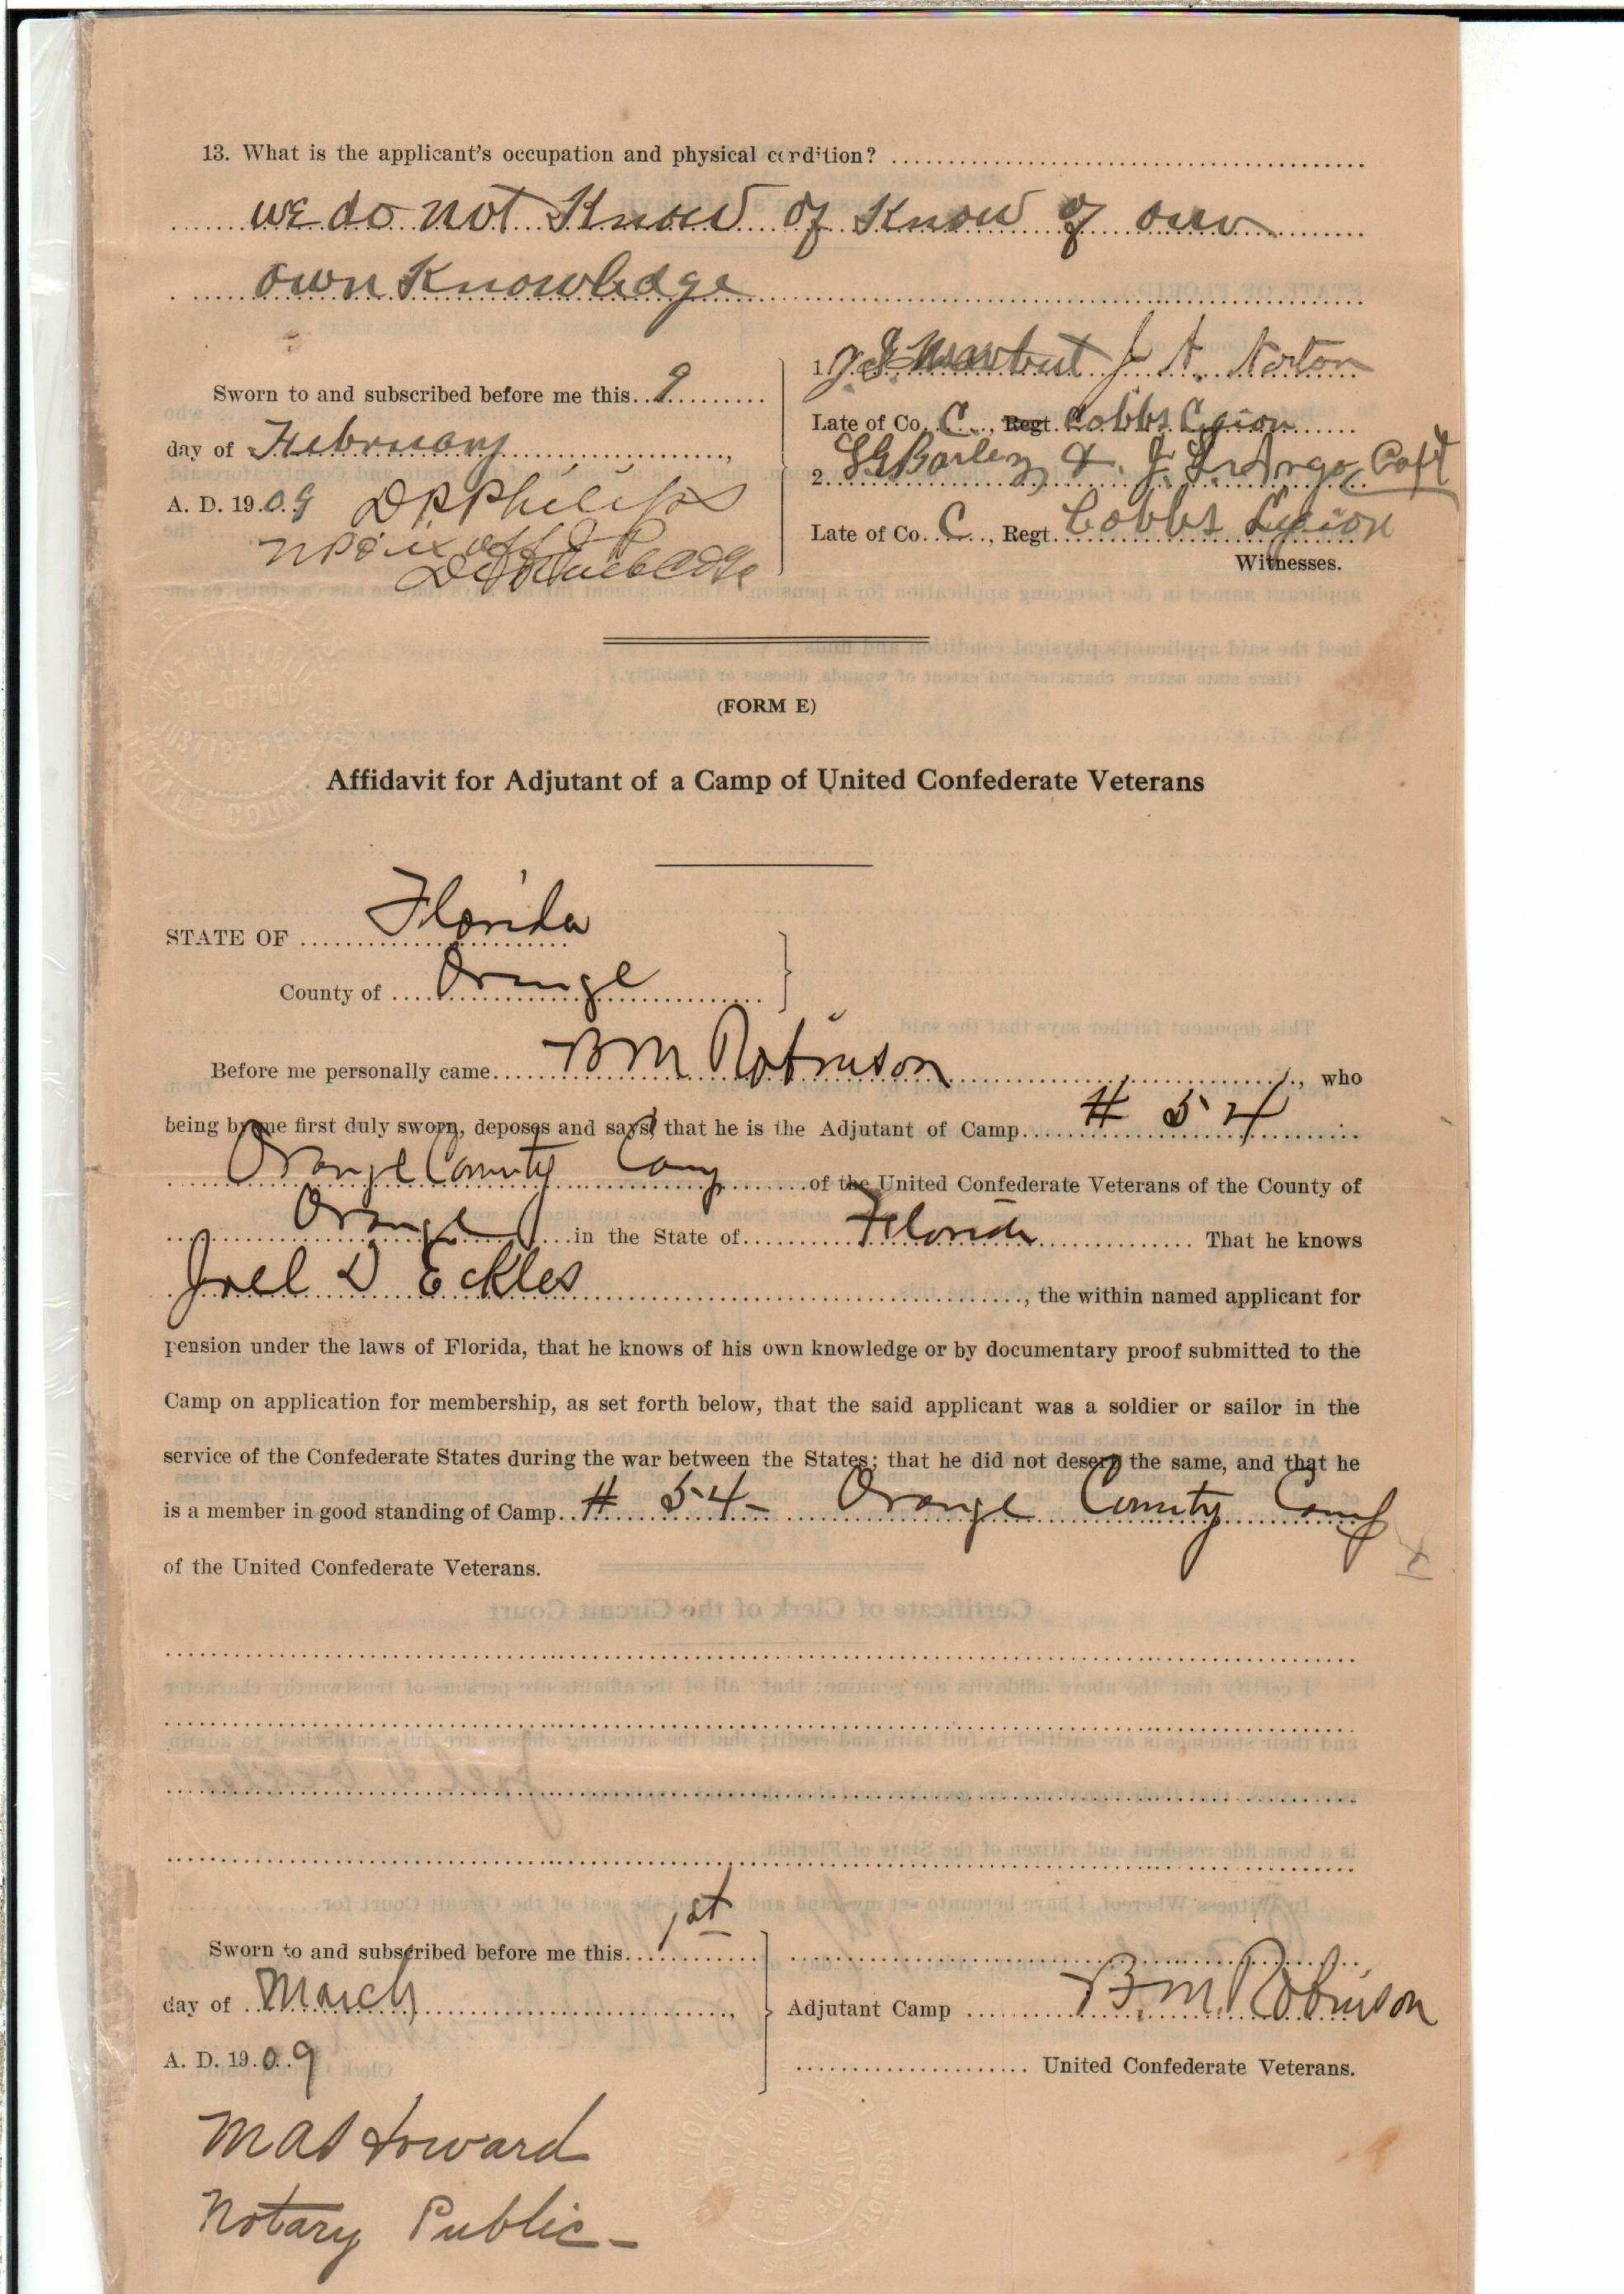 13. What is the applicant's occupation and physical condition?
we do not Know of Know of our
own Knowledge
Sworn to and subscribed before me this 9
day of February,
A. D. 1909 D P Philips
N P & ex off J P
1. J. A. Norton
Late of Co. C., Regt. Cobbs Legion
2. & J. L. Argo, Capt
Late of Co. C., Regt. Cobbs Legion
Witnesses.
NOTARY PUBLIC
EX-OFFICIO
JUSTICE
(FORM E)
Affidavit for Adjutant of a Camp of United Confederate Veterans
STATE OF Florida
County of Orange
Before me personally came B M Robinson, who
being by me first duly sworn, deposes and says, that he is the Adjutant of Camp # 54
Orange County Camp of the United Confederate Veterans of the County of
Orange in the State of Florida That he knows
Joel D Eckles, the within named applicant for
pension under the laws of Florida, that he knows of his own knowledge or by documentary proof submitted to the
Camp on application for membership, as set forth below, that the said applicant was a soldier or sailor in the
service of the Confederate States during the war between the States; that he did not desert the same, and that he
is a member in good standing of Camp # 54 - Orange County Camp
of the United Confederate Veterans.
Sworn to and subscribed before me this 1st
day of March,
A. D. 1909
Adjutant Camp B. M. Robinson
United Confederate Veterans.
M A Howard
Notary Public -